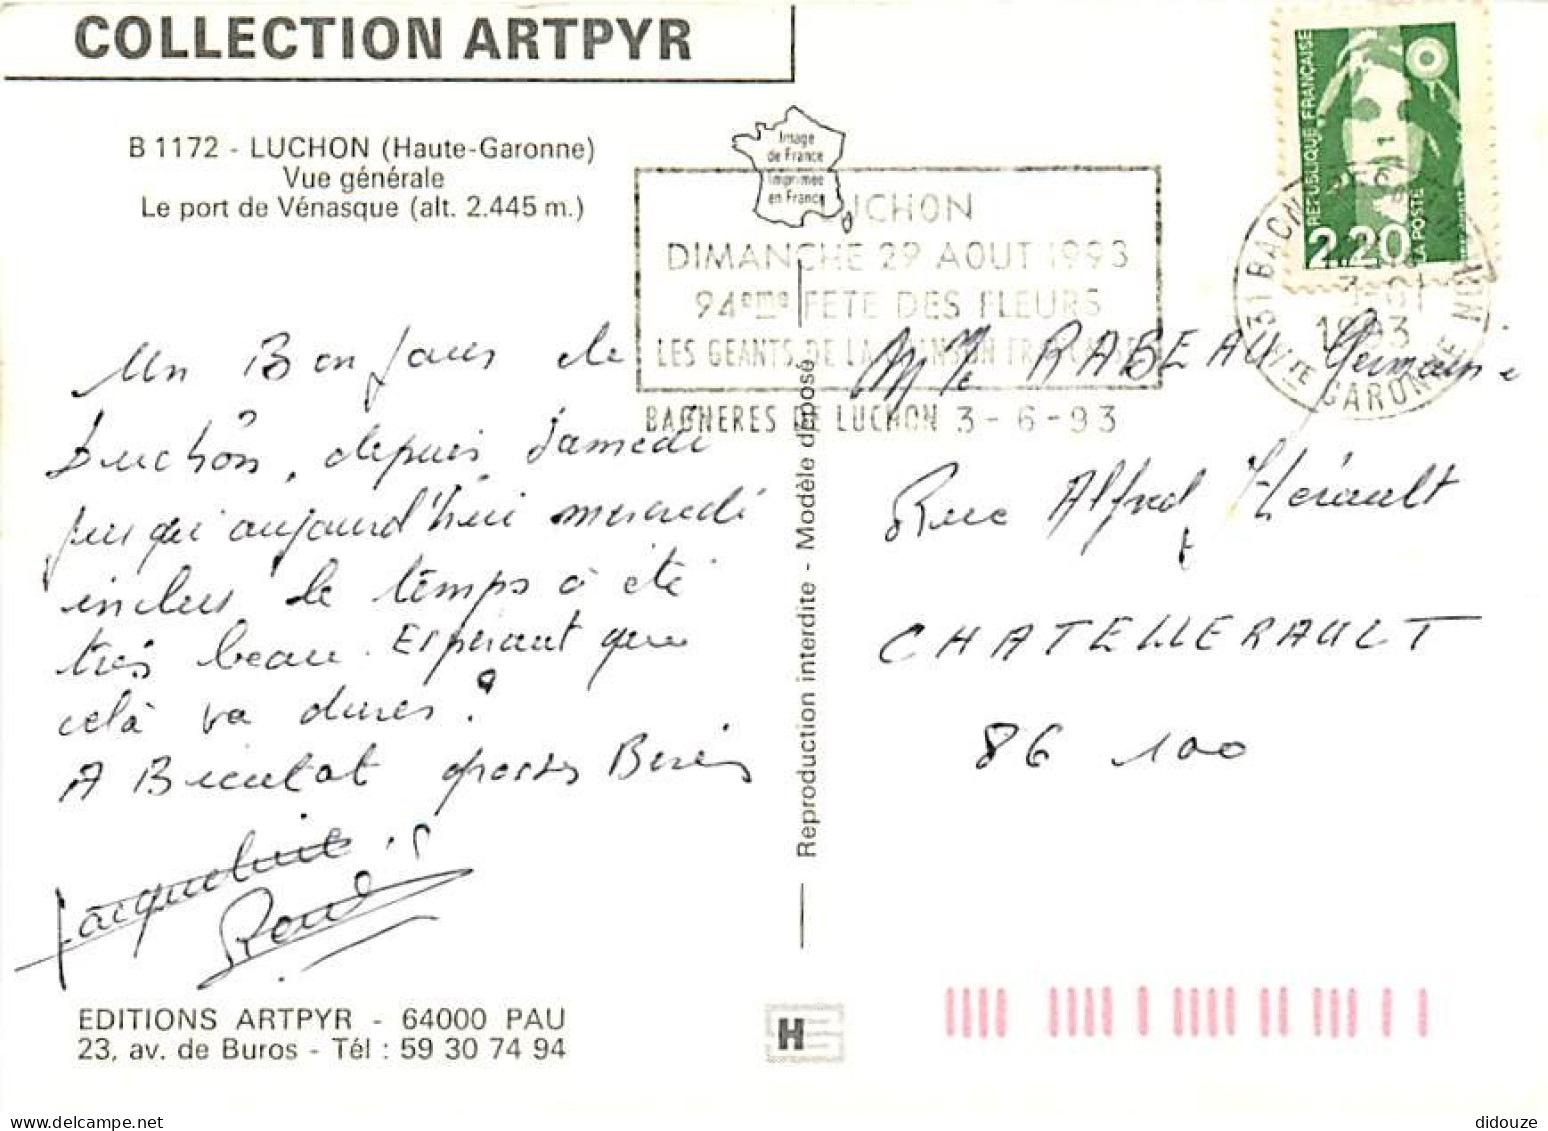 COLLECTION ARTPYR
B 1172 - LUCHON (Haute-Garonne)
Vue générale
Le port de Vénasque (alt. 2.445 m.)
Image
de France
Imprimée
en France
REPUBLIQUE FRANÇAISE
2,20
LA POSTE
LUCHON
DIMANCHE 29 AOUT 1993
94eme FETE DES FLEURS
LES GEANTS DE LA CHANSON FRANCAISE
BAGNERES DE LUCHON 3-6-93
31 BAGN
1993
HTE GARONNE
Un Bonjour de
Luchon, depuis samedi
jusqu'aujourd'hui mercredi
inclus le temps à été
très beau. Esperant que
celà va durer?
A Bientot grosses Bises
Jacqueline
René
Mme RABEAU Germaine
Rue Alfred Hérault
CHATELLERAULT
86 100
Reproduction interdite - Modèle déposé
EDITIONS ARTPYR - 64000 PAU
23, av. de Buros - Tél : 59 30 74 94
H
didouze